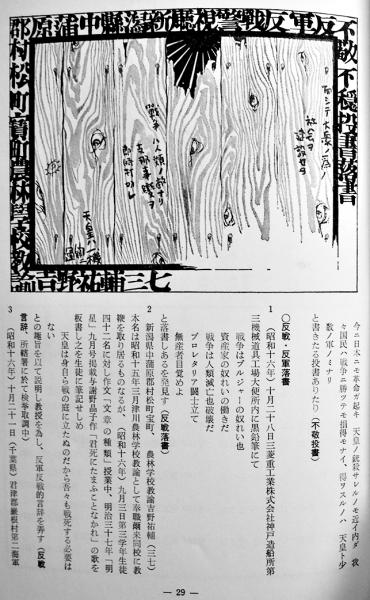 不敬 不穏投書落書
反軍反戰警視廳新潟縣中蒲原
郡村松町寶町農林學校教諭
吉野祐輔三七
社会ヲ
建設セヨ
戰爭ハ人類ノ敵ナリ
今ニ日本ニモ革命ガ起キ 天皇ノ銃殺サレルノモ近イ内ダ 我
々国民ハ戦争ニ勝ツテモ損得モナイ、得ヲスルノハ 天皇ト少
数ノ軍ノミナリ
と書きたる投書ありたり(不敬投書)
〇反戦・反軍落書
1 (昭和十六年)十月二十八日三菱重工業株式会社神戸造船所第
三機械道具工場大便所内に黒鉛筆にて
戦争はブルジャーの奴れい也
資産家の奴れいの働きだ
戦争は人類滅亡也破壊だ
プロレタリア闘士立て
無産者目覚めよ
と落書しあるを発見す(反戦落書)
2 新潟県中蒲原郡村松町宝町、農林学校教諭吉野祐輔(三七)
本名は昭和十五年三月津川農林学校教諭として奉職爾来同校に教
鞭を取り居るものなるが、(昭和十六年)九月三日第三学年生徒
四十二名に対し作文「文章の種類」授業中、明治三十七年「明
星」九月号掲載与謝野晶子作「君死にたまふことなかれ」の歌を
板書し之を生徒に筆記せしめ
天皇は身自ら戦の庭に立たぬのだから吾々も戦死する必要は
ない
との趣旨を以て説明し教授を為し、反軍反戦的言辞を弄す(反戦
言辞、所轄署に於て検挙取調中)
3 (昭和十六年)十月二十一日(千葉県)君津郡巌根村第二海軍
— 29 —